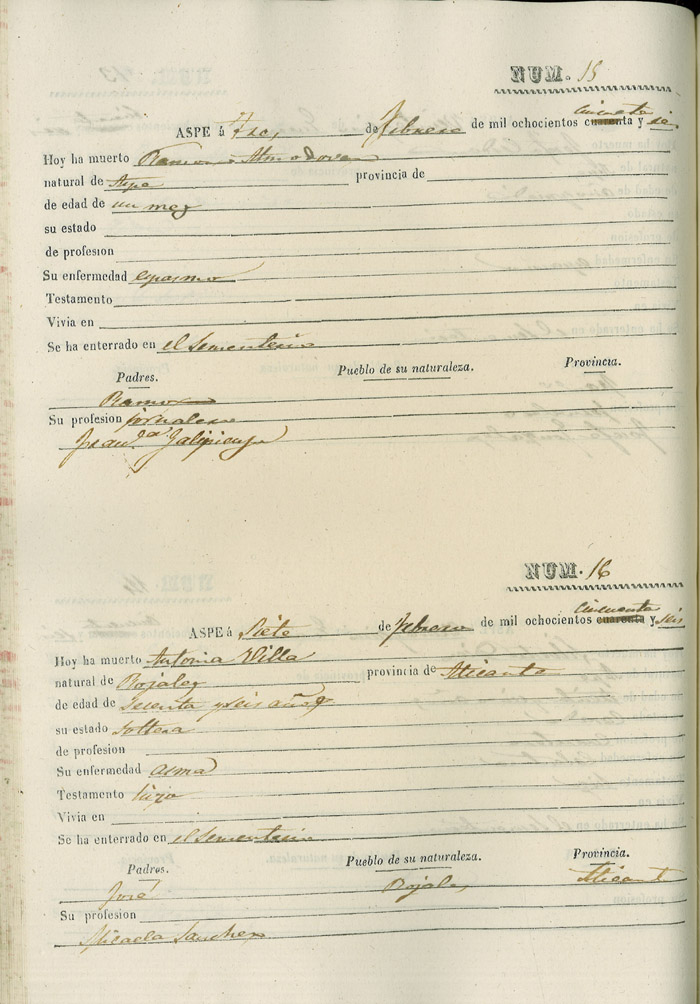 NUM. 15
ASPE á Tres de febrero de mil ochocientos cuarenta cincuenta y seis
Hoy ha muerto Ramon Almodovar
natural de Aspe provincia de
de edad de un mez
su estado
de profesion
Su enfermedad espasmo
Testamento
Vivia en
Se ha enterrado en el Sementerio
Padres. Pueblo de su naturaleza. Provincia.
Ramon
Su profesion jornalero
NUM. 16
ASPE á Siete de febrero de mil ochocientos cuarenta cincuenta y seis
Hoy ha muerto Antonia Villa
natural de Rojalez provincia de Alicante
de edad de y seis años
su estado Soltera
de profesion
Su enfermedad asma
Testamento hizo
Vivia en
Se ha enterrado en el Sementerio
Padres. Pueblo de su naturaleza. Provincia.
José Rojales Alicant
Su profesion
Micaela Sanchez